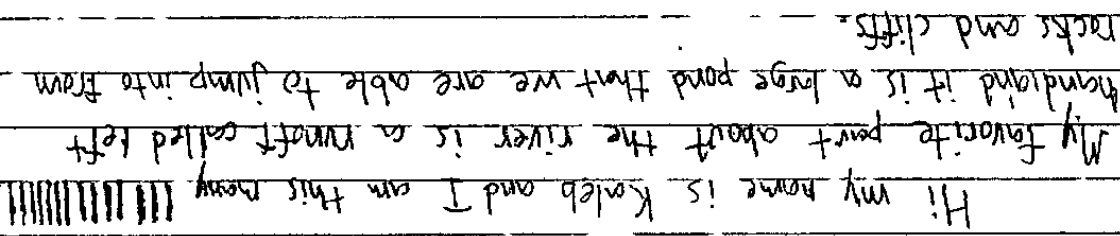 Hi my name is Kaleb and I am this many
My favorite part about the river is a runoft called left
handland it is a large pond that we are able to jump into from
racks and cliffs.